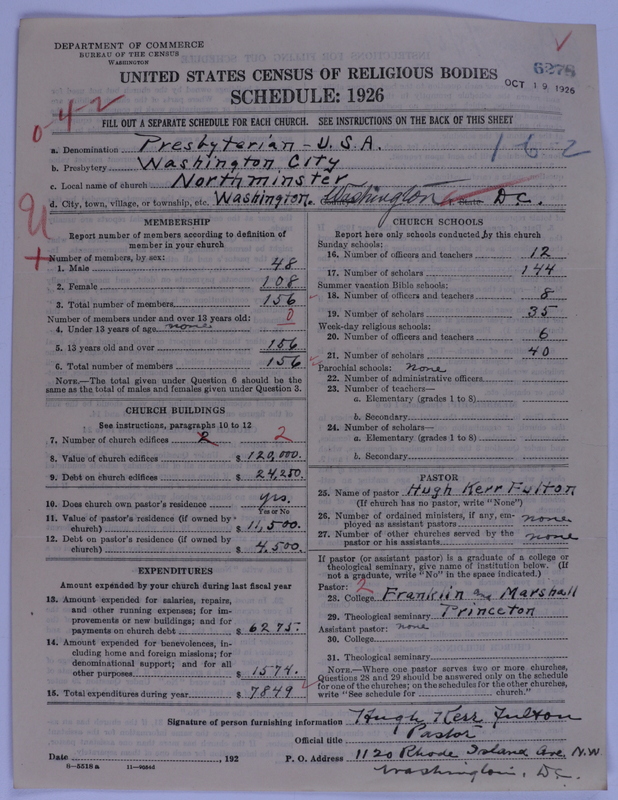 DEPARTMENT OF COMMERCE
BUREAU OF THE CENSUS
WASHINGTON
6278
OCT 19 1926
UNITED STATES CENSUS OF RELIGIOUS BODIES
SCHEDULE: 1926
0-4-2
FILL OUT A SEPARATE SCHEDULE FOR EACH CHURCH. SEE INSTRUCTIONS ON THE BACK OF THIS SHEET
a. Denomination Presbyterian - U.S.A.
162
b. Presbytery Washington City
c. Local name of church Northminster
d. City, town, village, or township, etc. Washington. County Washington State D.C.
MEMBERSHIP
Report number of members according to definition of
member in your church
Number of members, by sex:
1. Male 48
2. Female 108
3. Total number of members 156
Number of members under and over 13 years old: 0
4. Under 13 years of age none
5. 13 years old and over 156
6. Total number of members 156
NOTE.—The total given under Question 6 should be the
same as the total of males and females given under Question 3.
CHURCH BUILDINGS
See instructions, paragraphs 10 to 12
7. Number of church edifices 2 2
8. Value of church edifices $ 120,000.
9. Debt on church edifices $ 24,250.
10. Does church own pastor's residence yes.
Yes or No
11. Value of pastor's residence (if owned by
church) $ 11,500.
12. Debt on pastor's residence (if owned by
church) $ 4,500.
EXPENDITURES
Amount expended by your church during last fiscal year
13. Amount expended for salaries, repairs,
and other running expenses; for im-
provements or new buildings; and for
payments on church debt $ 6275.
14. Amount expended for benevolences, in-
cluding home and foreign missions; for
denominational support; and for all
other purposes $ 1574.
15. Total expenditures during year $ 7849
CHURCH SCHOOLS
Report here only schools conducted by this church
Sunday schools:
16. Number of officers and teachers 12
17. Number of scholars 144
Summer vacation Bible schools:
18. Number of officers and teachers 8
19. Number of scholars 35
Week-day religious schools:
20. Number of officers and teachers 6
21. Number of scholars 40
Parochial schools: None
22. Number of administrative officers
23. Number of teachers—
a. Elementary (grades 1 to 8)
b. Secondary
24. Number of scholars—
a. Elementary (grades 1 to 8)
b. Secondary
PASTOR
25. Name of pastor Hugh Kerr Fulton
(If church has no pastor, write "None")
26. Number of ordained ministers, if any, em-
ployed as assistant pastors none
27. Number of other churches served by the
pastor or his assistants none
If pastor (or assistant pastor) is a graduate of a college or
theological seminary, give name of institution below. (If
not a graduate, write "No" in the space indicated.)
Pastor: 2
28. College Franklin and Marshall
29. Theological seminary Princeton
Assistant pastor: none
30. College
31. Theological seminary
NOTE.—Where one pastor serves two or more churches,
Questions 28 and 29 should be answered only on the schedule
for one of the churches; on the schedules for the other churches,
write "See schedule for church."
Signature of person furnishing information Hugh Kerr Fulton
Official title Pastor
Date , 192
P. O. Address 1120 Rhode Island Ave. N.W
8—5518a
Washington, D.C.